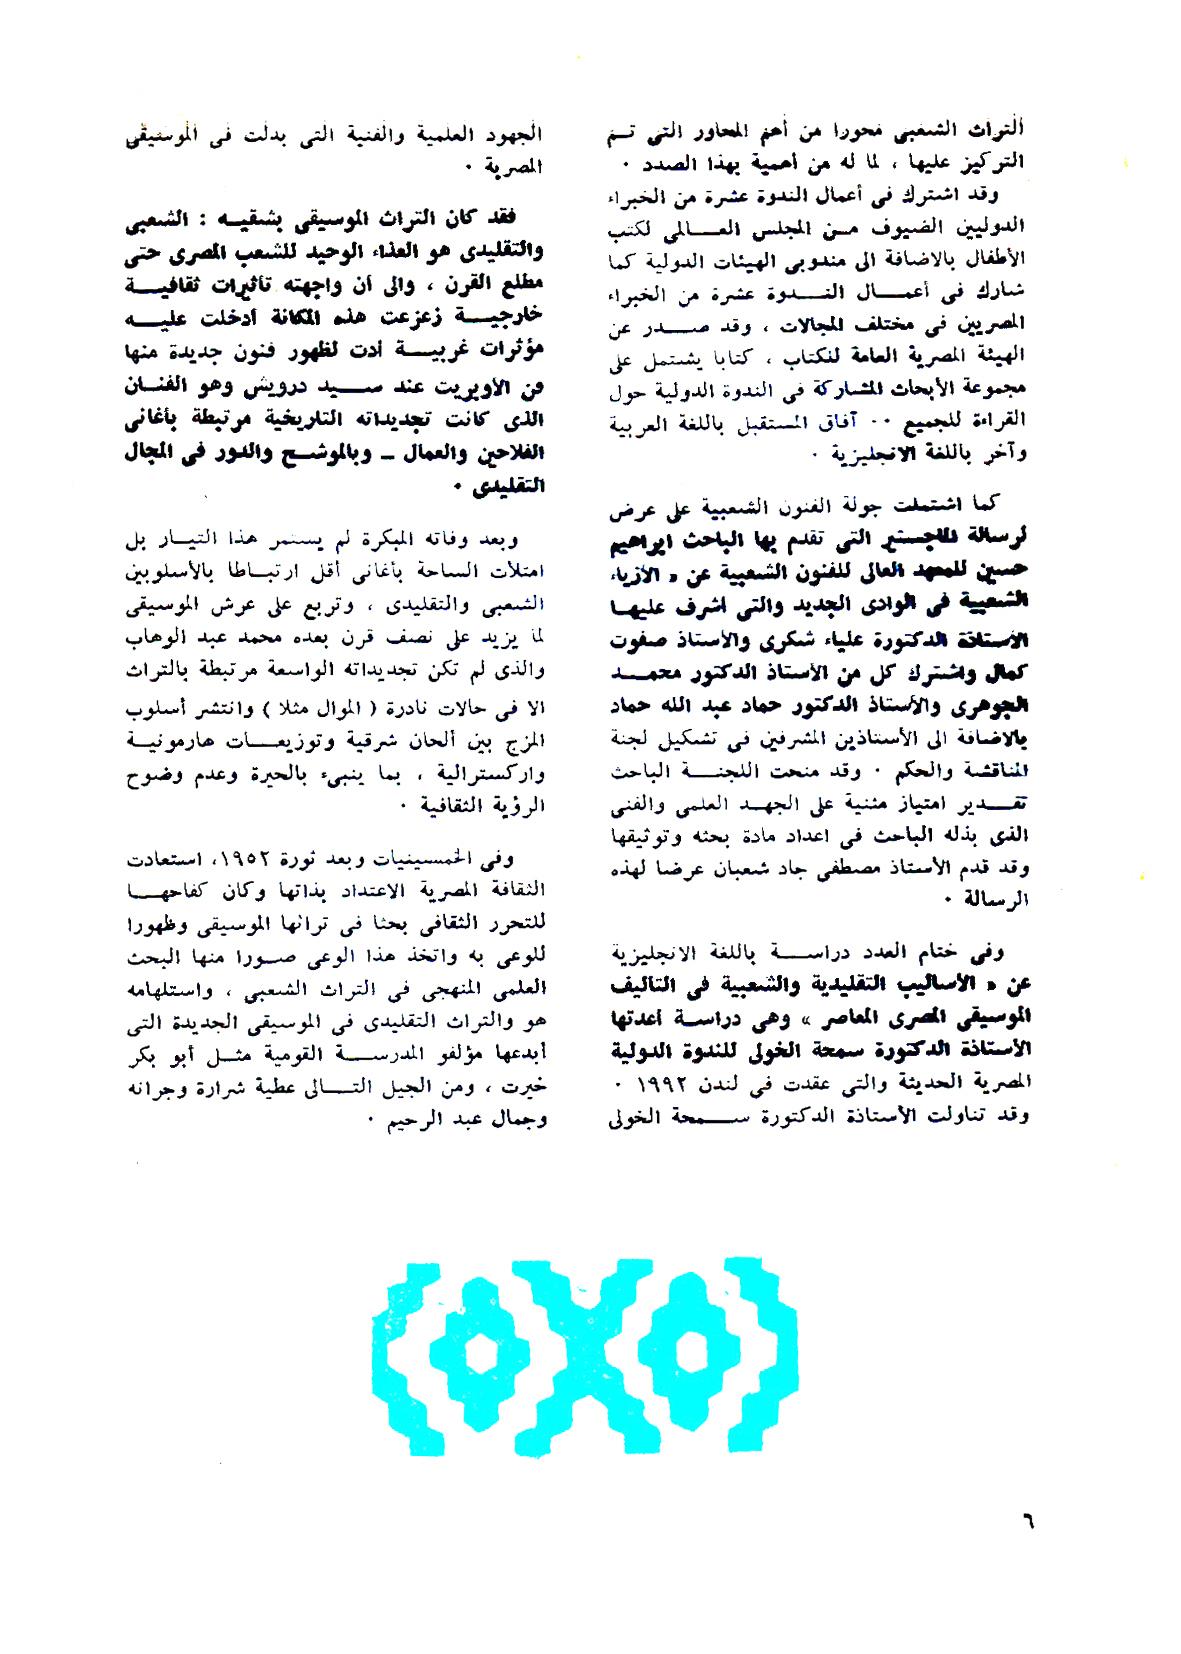 التراث الشعبى محورا من أهم المحاور التى تم
التركيز عليها ، لما له من أهمية بهذا الصدد ٠
وقد اشترك فى أعمال الندوة عشرة من الخبراء
الدوليين الضيوف من المجلس العالمى لكتب
الأطفال بالاضافة الى مندوبى الهيئات الدولية كما
شارك فى أعمال الندوة عشرة من الخبراء
المصريين فى مختلف المجالات ، وقد صدر عن
الهيئة المصرية العامة للكتاب ، كتابا يشتمل على
مجموعة الأبحاث المشاركة فى الندوة الدولية حول
القراءة للجميع ٠٠ آفاق المستقبل باللغة العربية
وآخر باللغة الانجليزية ٠
كما اشتملت جولة الفنون الشعبية على عرض
لرسالة الماجستير التى تقدم بها الباحث ابراهيم
حسين للمعهد العالى للفنون الشعبية عن « الأزياء
الشعبية فى الوادى الجديد والتى اشرف عليها
الأستاذة الدكتورة علياء شكرى والأستاذ صفوت
كمال واشترك كل من الأستاذ الدكتور محمد
الجوهرى والأستاذ الدكتور حماد عبد الله حماد
بالاضافة الى الأستاذين المشرفين فى تشكيل لجنة
المناقشة والحكم ٠ وقد منحت اللجنة الباحث
تقدير امتياز مثنية على الجهد العلمى والفنى
الذى بذله الباحث فى اعداد مادة بحثه وتوثيقها
وقد قدم الأستاذ مصطفى جاد شعبان عرضا لهذه
الرسالة ٠
وفى ختام العدد دراسة باللغة الانجليزية
عن « الأساليب التقليدية والشعبية فى التاليف
الموسيقى المصرى المعاصر » وهى دراسة أعدتها
الأستاذة الدكتورة سمحة الخولى للندوة الدولية
المصرية الحديثة والتى عقدت فى لندن ١٩٩٢ ٠
وقد تناولت الأستاذة الدكتورة سمحة الخولى
الجهود العلمية والفنية التى بذلت فى الموسيقى
المصرية ٠
فقد كان التراث الموسيقى بشقيه : الشعبى
والتقليدى هو الغذاء الوحيد للشعب المصرى حتى
مطلع القرن ، والى أن واجهته تأثيرات ثقافية
خارجية زعزعت هذه المكانة أدخلت عليه
مؤثرات غربية أدت لظهور فنون جديدة منها
فن الأوبريت عند سيد درويش وهو الفنان
الذى كانت تجديداته التاريخية مرتبطة بأغانى
الفلاحين والعمال ــ وبالموشح والدور فى المجال
التقليدى ٠
وبعد وفاته المبكرة لم يستمر هذا التيار بل
امتلأت الساحة بأغانى أقل ارتباطا بالأسلوبين
الشعبى والتقليدى ، وتربع على عرش الموسيقى
لما يزيد على نصف قرن بعده محمد عبد الوهاب
والذى لم تكن تجديداته الواسعة مرتبطة بالتراث
الا فى حالات نادرة ( الموال مثلا ) وانتشر أسلوب
المزج بين ألحان شرقية وتوزيعات هارمونية
واركسترالية ، بما ينبىء بالحيرة وعدم وضوح
الرؤية الثقافية ٠
وفى الخمسينيات وبعد ثورة ١٩٥٢، استعادت
الثقافة المصرية الاعتداد بذاتها وكان كفاحها
للتحرر الثقافى بحثا فى تراثها الموسيقى وظهورا
للوعى به واتخذ هذا الوعى صورا منها البحث
العلمى المنهجى فى التراث الشعبى ، واستلهامه
هو والتراث التقليدى فى الموسيقى الجديدة التى
أبدعها مؤلفو المدرسة القومية مثل أبو بكر
خيرت ، ومن الجيل التالى عطية شرارة وجرانه
وجمال عبد الرحيم ٠
٦